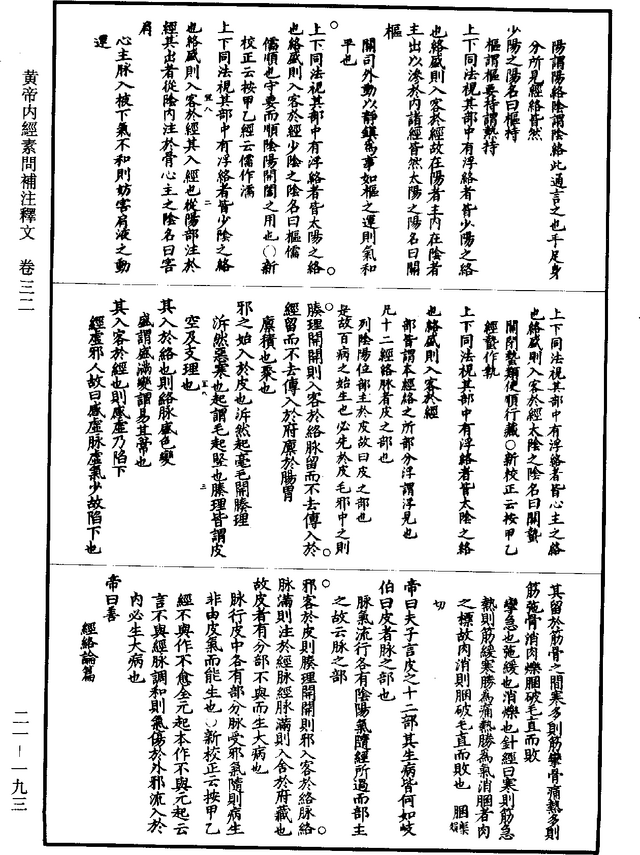 陽謂陽絡陰謂陰絡此通言之也手足身
分所見經絡皆然
少陽之陽名曰樞持
樞謂樞要持謂執持
上下同法視其部中有浮絡者皆少陽之絡
也絡盛則入客於經故在陽者主内在陰者
主出以滲於内諸經皆然太陽之陽名曰關
樞
關司外動以靜鎮為事如樞之運則氣和
平也
上下同法視其部中有浮絡者皆太陽之絡
也絡盛則入客於經少陰之陰名曰樞儒
儒順也守要而順陰陽開闔之用也○新
校正云按甲乙經云儒作濡
上下同法視其部中有浮絡者皆少陰之絡
也絡盛則入客於經其入經也從陽部注於
經其出者從陰内注於骨心主之陰名曰害
肩
心主脉入掖下氣不和則妨害肩液之動
運
上下同法視其部中有浮絡者皆心主之絡
也絡盛則入客於經太陰之陰名曰關蟄
關閉蟄類使順行藏○新校正云按甲乙
經蟄作執
上下同法視其部中有浮絡者皆太陰之絡
也絡盛則入客於經
部皆謂本經絡之所部分浮謂浮見也
凡十二經絡脉者皮之部也
列陰陽位部主於皮故曰皮之部也
是故百病之始生也必先於皮毛邪中之則
腠理開開則入客於絡脉留而不去傳入於
經留而不去傳入於府廪於腸胃
廪積也聚也
邪之始入於皮也泝然起毫毛開腠理
泝然惡寒也起謂毛起竪也腠理皆謂皮
空及支理也
其入於絡也則絡脉盛色變
盛謂盛滿變謂易其常也
其入客於經也則感虚乃陷下
經虚邪人故曰感虚脉虚氣少故陷下也
其留於筋骨之間寒多則筋攣骨痛熱多則
筋弛骨消肉爍䐃破毛直而敗
攣急也弛緩也消爍也針經曰寒則筋急
熱則筋緩寒勝為痛熱勝為氣消䐃者肉
之標故肉消則䐃破毛直而敗也 䐃
切
帝曰夫子言皮之十二部其生病皆何如岐
伯曰皮者脉之部也
脉氣流行各有陰陽氣隨經所過而部主
之故云脉之部
邪客於皮則腠理開開則邪入客於絡脉絡
脉滿則注於經脉經脉滿則入舍於府藏也
故皮者有分部不與而生大病也
脉行皮中各有部分脉受邪氣隨則病生
非由皮氣而能生也○新校正云按甲乙
經不與作不愈全元起本作不與元起云
言不與經脉調和則氣傷於外邪流入於
内必生大病也
帝曰善
經絡論篇
黄帝内經素問補注釋文 卷三二
二一—一九三